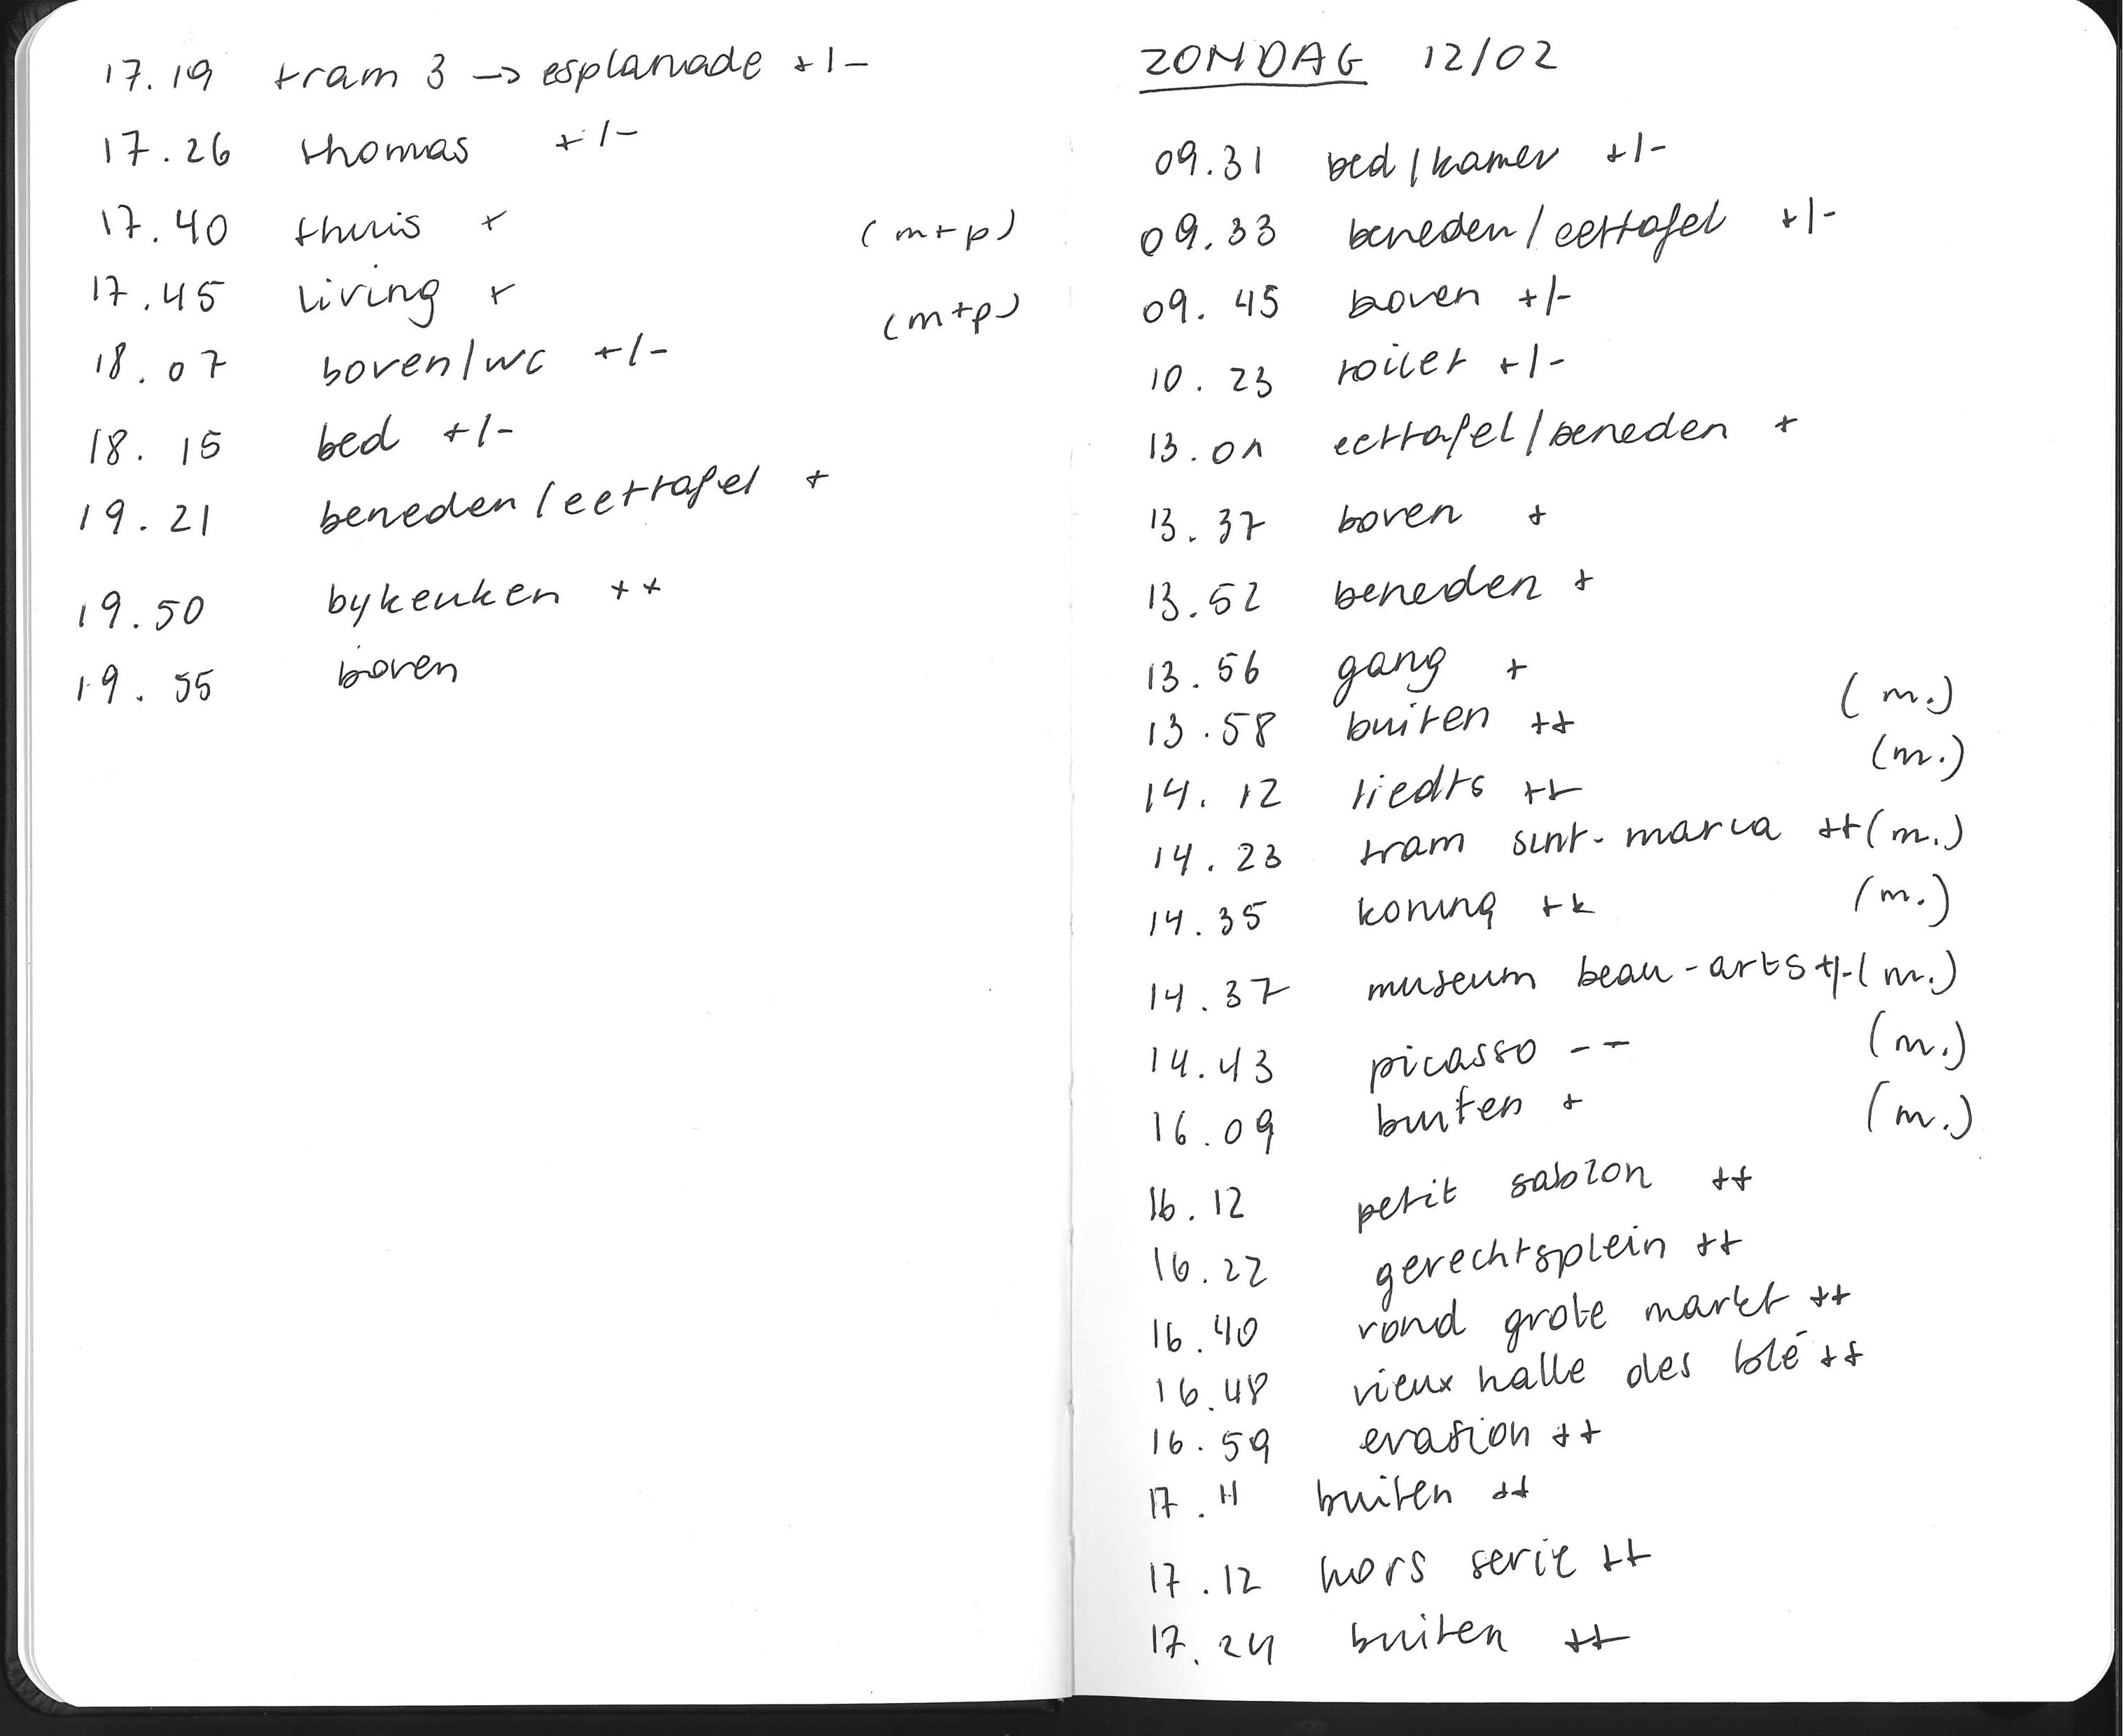 17.19 tram 3 → esplanade +/-
17.26 thomas +/-
17.40 thuis + (m+p)
17.45 living + (m+p)
18.07 boven/wc +/-
18.15 bed +/-
19.21 beneden/eettafel +
19.50 bykeuken ++
19.55 boven
ZONDAG 12/02
09.31 bed/kamer +/-
09.33 beneden/eettafel +/-
09.45 boven +/-
10.23 toilet +/-
13.01 eettafel/beneden +
13.37 boven +
13.52 beneden +
13.56 gang +
13.58 buiten ++ (m.)
14.12 liedts ++ (m.)
14.23 tram sint-maria ++ (m.)
14.35 koning ++ (m.)
14.37 museum beau-arts +/- (m.)
14.43 picasso -- (m.)
16.09 buiten + (m.)
16.12 petit sablon ++
16.22 gerechtsplein ++
16.40 rond grote markt ++
16.48 vieux halle des blé ++
16.59 evasion ++
17.11 buiten ++
17.12 hors serie ++
17.24 buiten ++